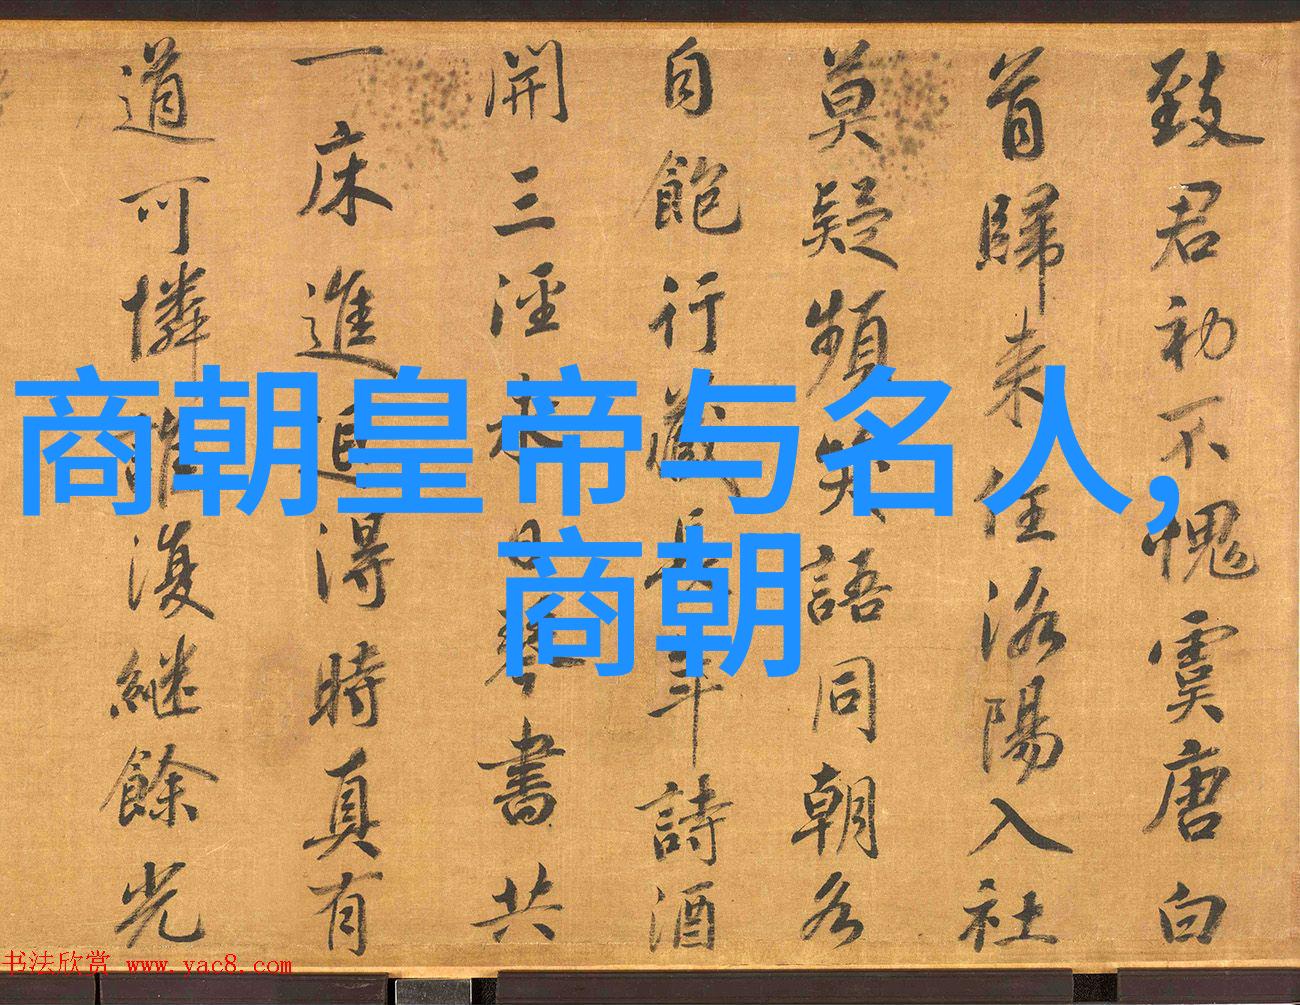 致君初不愧虞唐白
首歸来住洛陽入社
莫疑頻笑語同朝各
自飽行藏長年詩酒
開三涇永日琴書共
一床進退得時真有
道可憐誰復繼餘光
商朝皇帝与名人,
商朝
书法欣赏 www.yac8.com